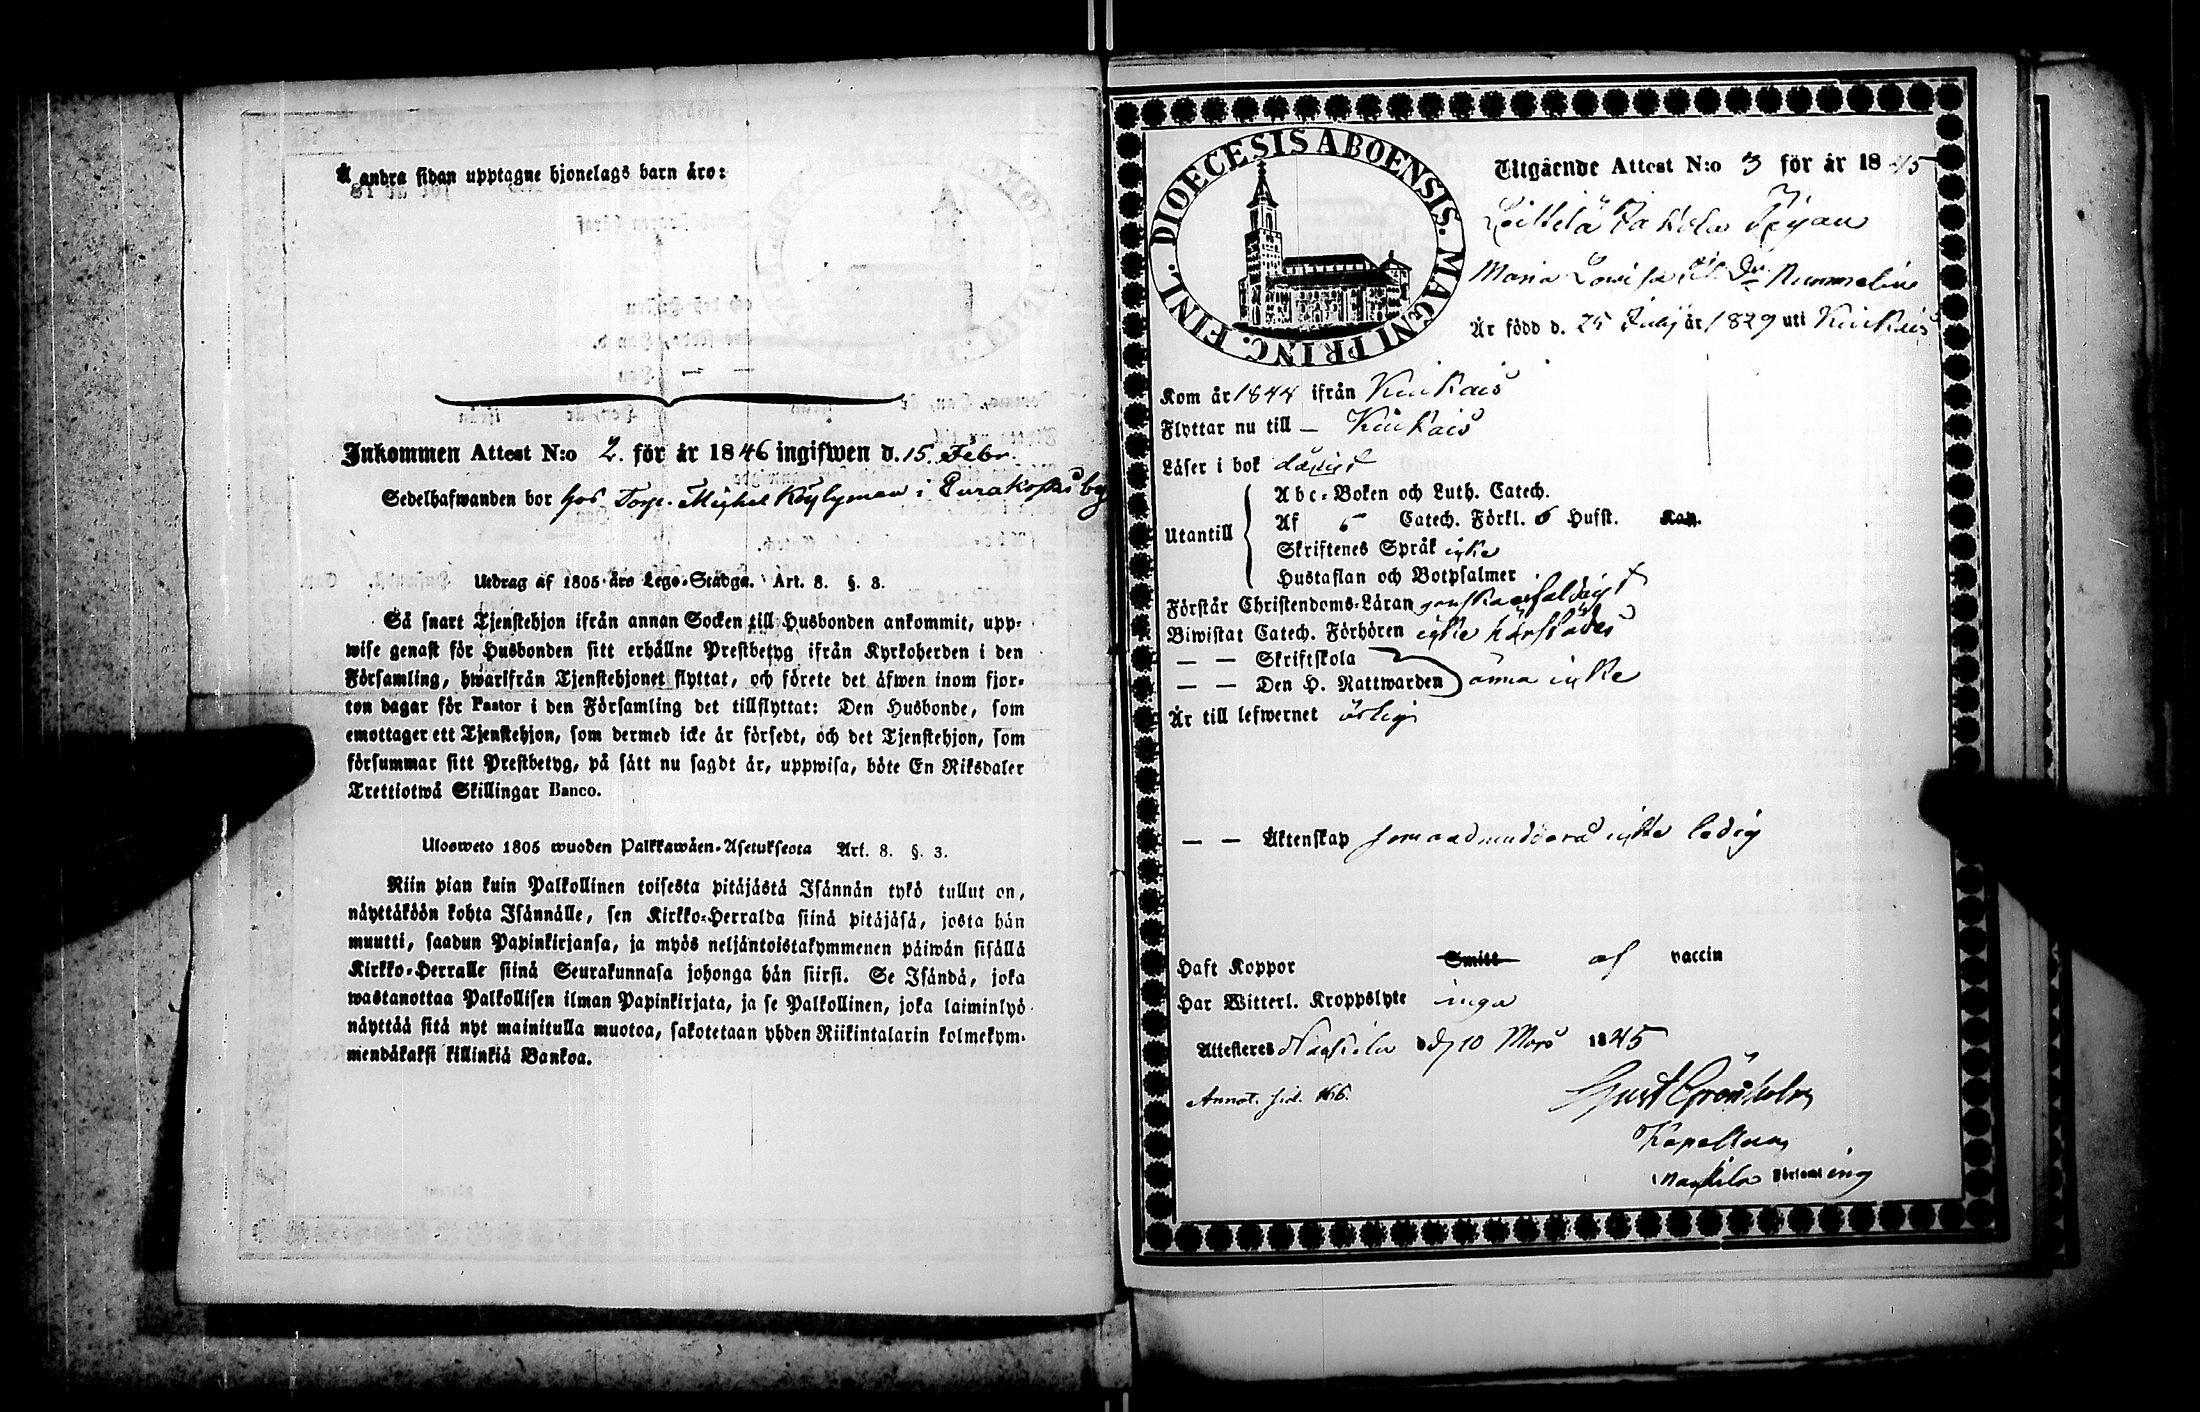 Å andra sidan upptagne hjonelags barn äro:
Inkommen Attest N:o 2. för år 1846 ingifwen d. 15. Febr.
Sedelhafwanden bor hos Torp. Michel i by
Utdrag af 1805 års Lego-Städga. Art. 8. §. 3.
Så snart Tjenstehjon ifrån annan Socken till Husbonden ankommit, upp-
wise genast för Husbonden sitt erhållne Prestbetyg ifrån Kyrkoherden i den
Församling, hwarifrån Tjenstehjonet flyttat, och förete det äfwen inom fjor-
ton dagar för Pastor i den Församling det tillflyttat: Den Husbonde, som
emottager ett Tjenstehjon, som dermed icke är försedt, och det Tjenstehjon, som
försummar sitt Prestbetyg, på sätt nu sagdt är, uppwisa, böte En Riksdaler
Trettiotwå Skillingar Banco.
Ulosweto 1805 wuoden Palkkawäen-Asetuksesta Art. 8. §. 3.
Niin pian kuin Palkollinen toisesta pitäjästä Isännän tykö tullut on,
näyttäköön kohta Isännälle, sen Kirkko-Herralda siinä pitäjäsä, josta hän
muutti, saadun Papinkirjansa, ja myös neljäntoistakymmenen päiwän sisällä
Kirkko-Herralle siinä Seurakunnasa johonga hän siirsi. Se Isändä, joka
wastanottaa Palkollisen ilman Papinkirjata, ja se Palkollinen, joka laiminlyö
näyttää sitä nyt mainitulla muotoa, sakotetaan yhden Riikintalarin kolmekym-
mendäkaksi killinkiä Bankoa.
DIOECESIS ABOENSIS. MAGNI PRINC. FINL.
Utgående Attest N:o 3 för år 1845
Pigan
Maria Lovisa Dr Nummelin
Är född d. 25 July år 1829 uti Kiukais
Kom år 1844 ifrån Kiukais
Flyttar nu till – Kiukais
Läser i bok
Utantill
Abc-Boken och Luth. Catech.
Af 5 Catech. Förkl. 6 Husst. Kap.
Skriftenes Språk icke
Hustaflan och Botpsalmer
Förstår Christendoms-Läran ganska enfaldigt
Biwistat Catech. Förhören icke härstädes
— — Skriftskola
— — Den H. Nattwarden ännu icke
Är till lefwernet ärlig
— — Äktenskap ledig
Haft Koppor Smitt af vaccin
Har Witterl. Kroppslyte inga
Attesteres Nackila d 10 Mars 1845
Annot. sid. 166.
Gust Grönholm
Kapellan
i Nackila Församling